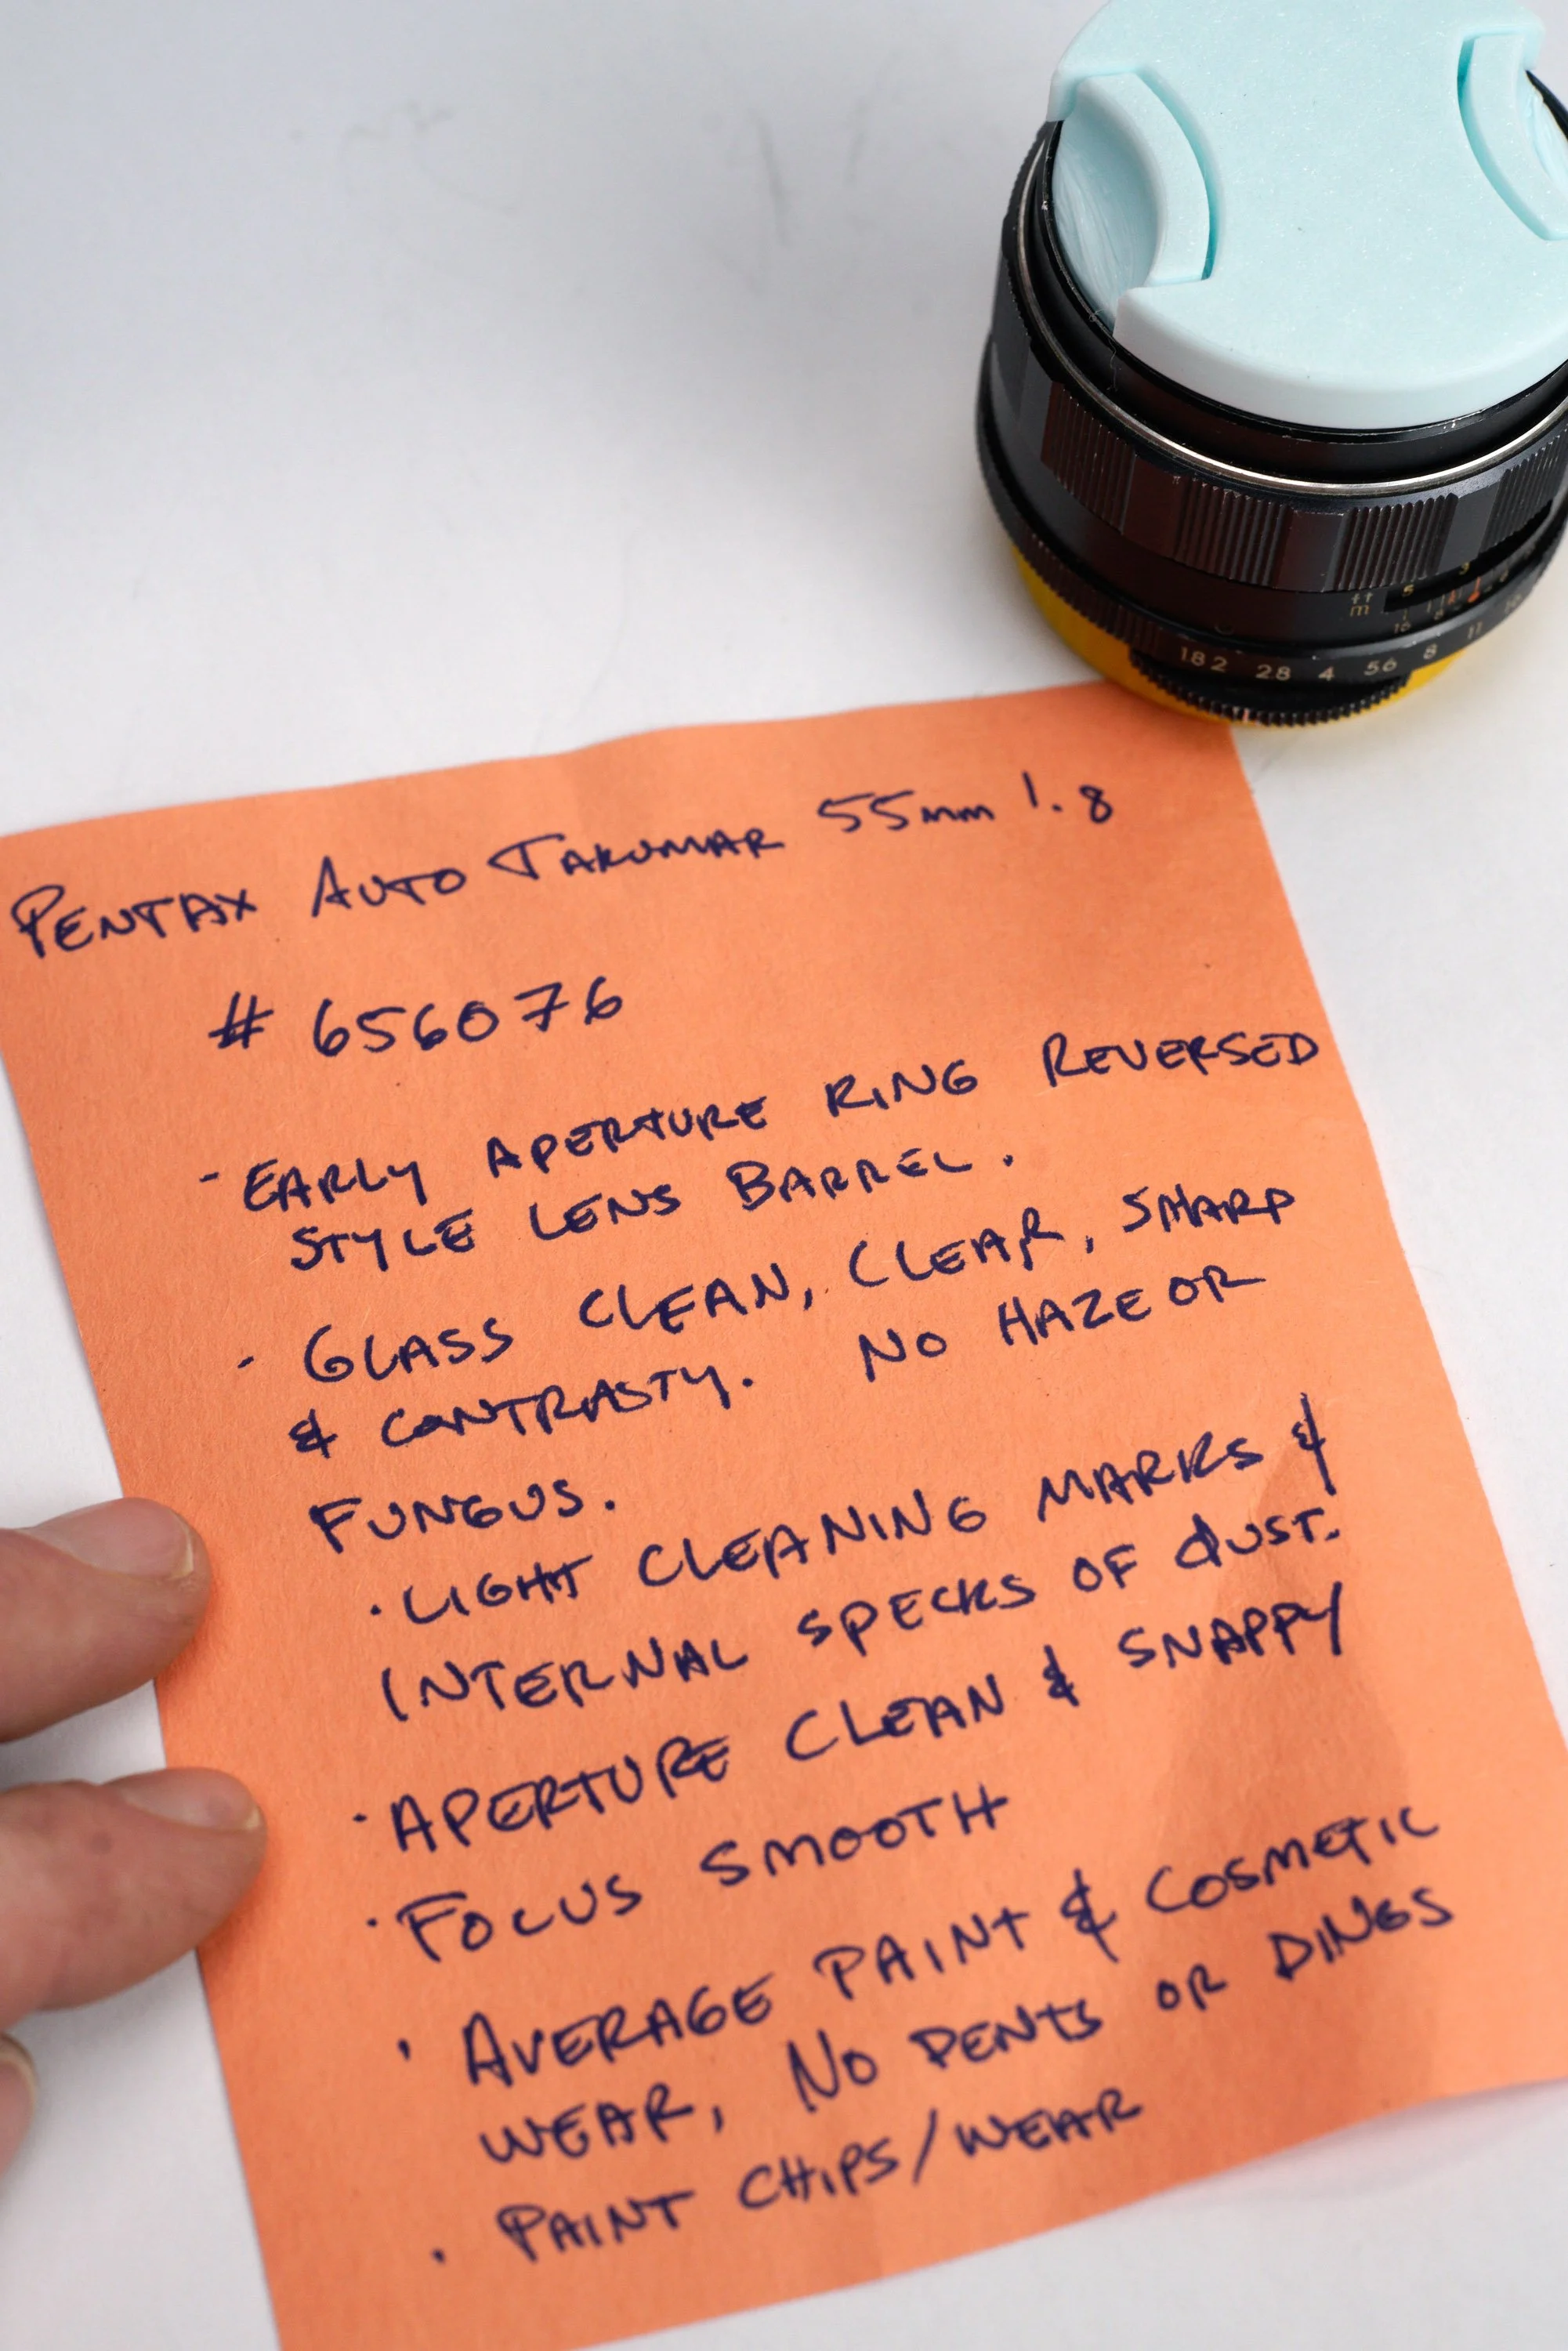 ft 5 3
m
16 8
18 2 28 4 56 8 11
PENTAX AUTO TAKUMAR 55mm 1.8
# 656076
- EARLY APERTURE RING REVERSED
STYLE LENS BARREL.
- GLASS CLEAN, CLEAR, SHARP
& CONTRASTY. NO HAZE OR
FUNGUS.
· LIGHT CLEANING MARKS &
INTERNAL SPECKS OF DUST.
· APERTURE CLEAN & SNAPPY
· FOCUS SMOOTH
· AVERAGE PAINT & COSMETIC
WEAR, NO DENTS OR DINGS
· PAINT CHIPS/WEAR